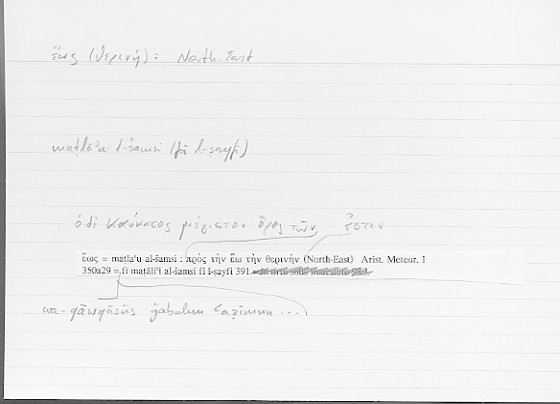 ἕως (θερινή) = North-East
maṭlaʿu l-šamsi (fī l-ṣayfi)
ὁ δὲ Καύκασος μέγιστον ὄρος τῶν ἐστιν
ἕως = matlaʿu al-šamsi : πρὸς τὴν ἕω τὴν θερινήν (North-East) Arist. Meteor. I
350a29 = fī maṭāliʿi al-šamsi fī l-ṣayfi 391.
wa-qāwqāsūs ǧabalun ʿaẓīmun ...